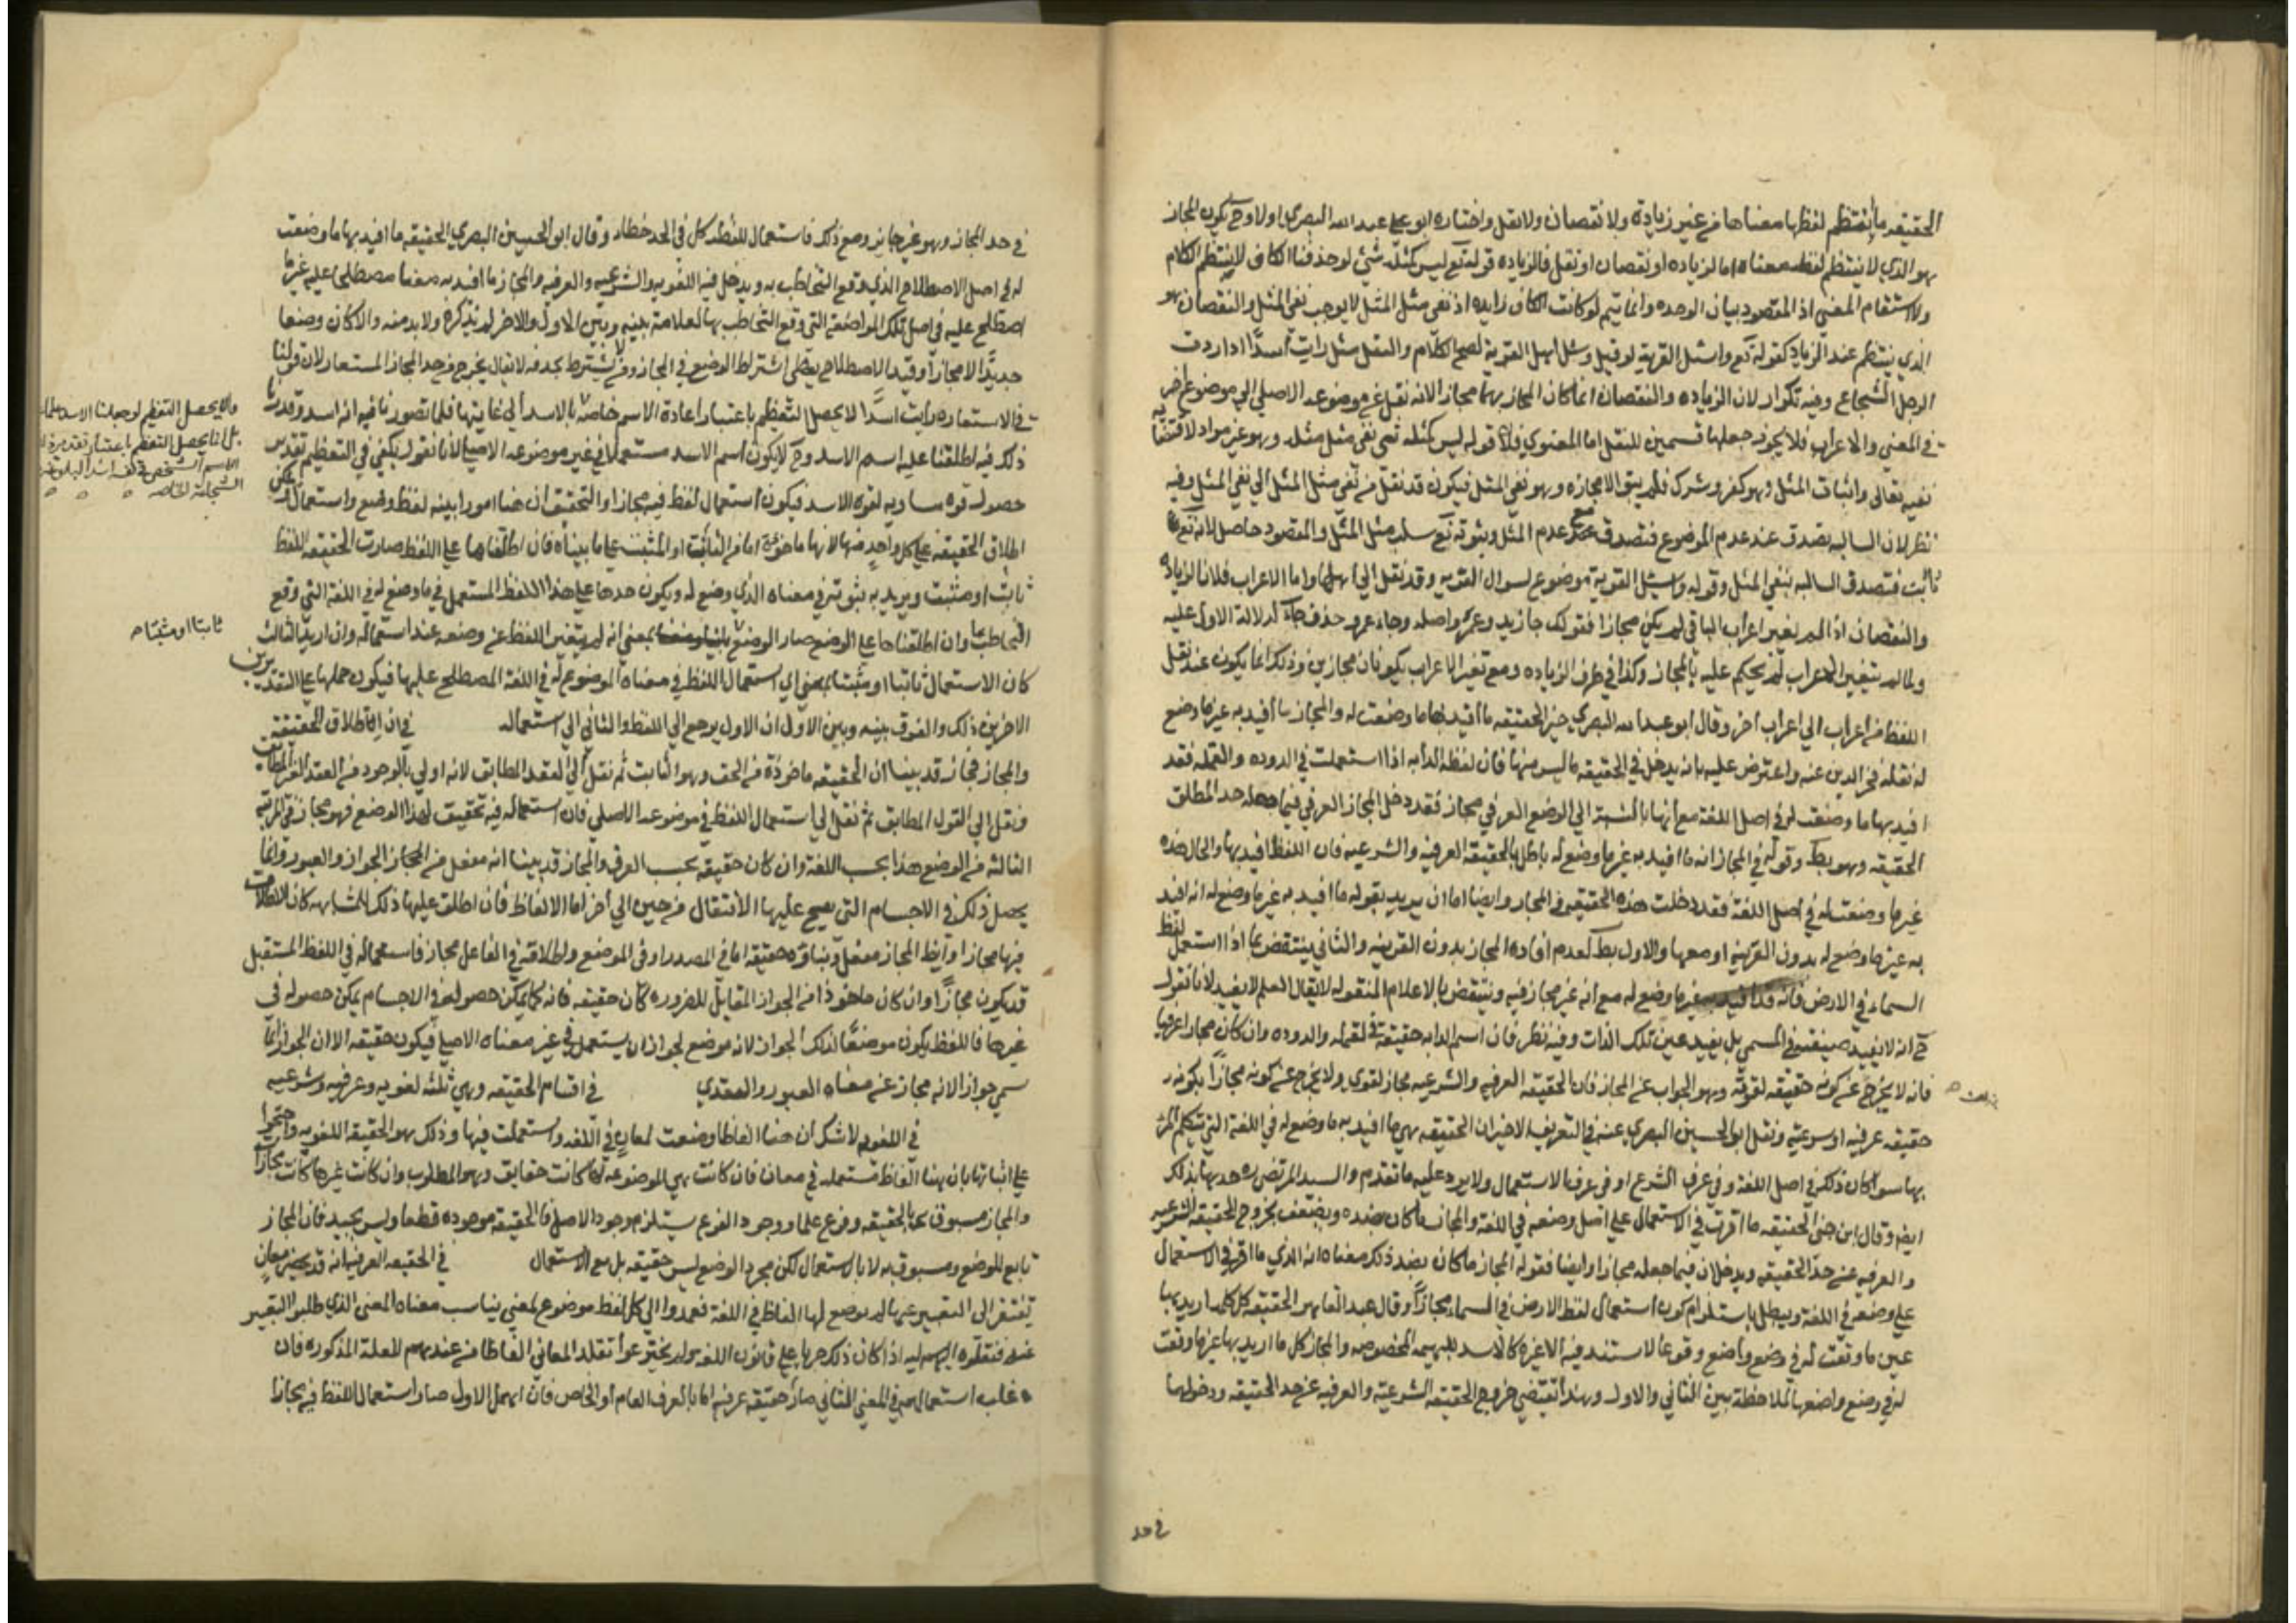 الحقيقه ما ينتظم لفظها معناها من غير زيادة ولا نقصان ولا نقل واختاره ابو عبد الله البصري اولا وح يكون المجاز
هو الذي لا ينتظم لفظه معناه اما لزياده او نقصان او نقل فالزياده قوله تع ليس كمثله شئ لو حذفنا الكاف لانتظم الكلام
ولاستقام المعنى اذ المقصود بيان الوحده وانما يتم لو كانت الكاف زايده اذ نفى مثل المثل لا يوجب نفى المثل والنقصان هو
الذي ينتظم عند الزياده كقوله تع واسئل القرية لو قيل وسئل اهل القرية لصح الكلام والنقل مثل رايت اسدا اذا اردت
الرجل الشجاع وفيه تكرار لان الزياده والنقصان انما كان المجاز بهما مجازا لانه نقل عن موضوعه الاصلي الى موضوع اخر
في المعنى والاعراب فلا يجوز جعلهما قسمين للنقل اما المعنوي فلان قوله ليس كمثله شى نفى مثل مثله وهو غير مراد لاقتضائه
نفيه تعالى واثبات المثل وهو كفر وشرك فلم يبق الا مجازه وهو نفى المثل فيكون قد نقل من نفى مثل المثل الى نفي المثل وفيه
نظر لان السالبه تصدق عند عدم الموضوع فتصدق مع عدم المثل وبثوته تع سلب مثل المثل والمقصود حاصل لانه تع
ثابت فتصدق السالبه بنفى المثل وقوله واسئل القرية موضوع لسوال القريه وقد نقل الى اهلها واما الاعراب فلان الزياده
والنقصان اذا لم يغير اعراب الباقي لم يكن مجازا فقولك جا زيد وعمرو اصله وجاء عمرو حذف جاء لدلالة الاول عليه
ولما لم يتغير الاعراب لم يحكم عليه بالمجاز وكذا في طرف الزياده ومع تغير الاعراب يكونان مجازين وذلك انما يكون عند نقل
اللفظ من اعراب الى اعراب اخر وقال ابو عبد الله البصري خير الحقيقه ما افيد بها ما وضعت له والمجاز ما افيد به غير ما وضع
له نقله فخر الدين عنه واعترض عليه بانه يدخل في الحقيقه ما ليس منها فان لفظه الدابه اذا استعملت في الدوده والنمله فقد
افيد بها ما وضعت له في اصل اللغة مع انها بالنسبة الى الوضع العرفي مجاز فقد دخل المجاز العرفي فيما جعله حد المطلق
الحقيقه وهو بط وقوله في المجاز انه ما افيد به غير ما وضع له باطل بالحقيقه العرفيه والشرعيه فان اللفظ افيد بها والحال هذه
غير ما وضعت له في اصل اللغة فقد دخلت هذه الحقيقه في المجاز وايضا اما ان يريد بقوله ما افيد به غير ما وضع له انه افيد
به غير ما وضع له بدون القرينه او معها والاول بط لعدم افاده المجاز بدون القرينه والثاني ينتقض بما اذا استعمل لفظ
السماء في الارض فانه قد افيد به غير ما وضع له مع انه غير مجاز فيه وينتقض بالاعلام المنقوله لا يقال العلم لا يفيد لانا نقول
ح انه لا يفيد صيغته في المسمى بل يفيد عين تلك الذات وفيه نظر فان اسم الدابه حقيقة في القمله والدوده وان كان مجازا عرفيا
فانه لا يخرج عن كونه حقيقه لغويه وهو الجواب عن المجاز فان الحقيقه العرفيه والشرعيه مجاز لغوي ولا يخرج عن كونه مجازا بكونه
حقيقه عرفيه او شرعيه ونقل ابو الحسين البصري عنه في التعريف الاخير ان الحقيقه هي ما افيد به ما وضع له في اللغة التي يتكلم
بها سوا كان ذلك في اصل اللغة وفي عرف الشرع او في عرف الاستعمال ولا يرد عليه ما تقدم والسيد المرتضى ره حد بهما بذلك
ايضا وقال ابن جنى الحقيقه ما اقرت في الاستعمال على اصل وضعه في اللغة والمجاز ما كان بضده ويضعف بخروج الحقيقه الشرعيه
والعرفيه عن حد الحقيقه ويدخلان فيما جعله مجازا وايضا فقوله المجاز ما كان بضد ذلك معناه انه الذي ما اقر في الاستعمال
على وضعه في اللغة ويبطل باستلزام كون استعمال لفظ الارض في السماء مجازا وقال عبد القاهر الحقيقه كل كلمه اريد بها
عين ما وقعت له في وضع واضع وقوعا لا تستند فيه الى غيره كالاسد للبهيمه المخصوصه والمجاز كل ما اريد بها غير ما وقعت
له في وضع واضعها لملاحظة بين الثاني والاول وهذا يقتضي خروج الحقيقه الشرعيه والعرفيه عن حد الحقيقه ودخولهما
في حد
في حد المجاز وهو غير جايز ومع ذلك فاستعمال للفظه كل في الحد خطا وقال ابو الحسين البصري الحقيقه ما افيد بها ما وضعت
له في اصل الاصطلاح الذي وقع التخاطب به ويدخل فيه اللغويه والشرعيه والعرفيه والمجاز ما افيد به معنا مصطلحا عليه غير ما
اصطلح عليه في اصل تلك المواضعة التي وقع التخاطب بها لعلامة بينه وبين الاول والاخر لم يذكره ولا بد منه والا كان وضعا
جديدا لا مجازا وقيد الاصطلاح يعطى اشتراط الوضع في المجاز ومن لا يشترط يحذفه لا يقال يخرج من حد المجاز المستعار لان قولنا
في الاستعاره رايت اسدا لا يحصل التعظيم باعتبار اعادة الاسم خاصة بالاسد الى غايتها فلما تصورنا فيه انه اسد وقدرنا
ذلك فيه اطلقنا عليه اسم الاسد وح لا يكون اسم الاسد مستعملا في غير موضوعه الاصلي لانا نقول يكفى في التعظيم تقدير
حصول قوه مساويه لقوه الاسد فيكون استعمال لفظ فيه مجازا والتحقيق ان هنا امورا بينه لفظ وضع واستعمال يمكن
اطلاق الحقيقه على كل واحد منها لانها ماخوذة اما من الثابت او المثبت على ما بيناه فان اطلقناها على اللفظ صارت الحقيقه اللفظ
ثابت او مثبت ويريد به ثبوته في معناه الذي وضع له ويكون حدها على هذا اللفظ المستعمل في ما وضع له في اللغة التي وقع
التخاطب بها وان اطلقناها على الوضع صار الوضع بمعنى انه لم يتغير اللفظ عن وضعه عند استعماله وان اريد الثالث
كان الاستعمال ثابتا او مثبتا بمعنى اي استعمال اللفظ في معناه الموضوع له في اللغة المصطلح عليها فيكون حملها على التقديرين
الاخرين ذلك والفرق بينه وبين الاول ان الاول يرجع الى اللفظ والثاني الى استعماله في ان اطلاق الحقيقه
والمجاز مجاز قد بينا ان الحقيقه ماخوذة من الحق وهو الثابت ثم نقل الى العقد المطابق لانه اولى بالوجود من العقد الغير المطابق
ونقل الى القول المطابق ثم نقل الى استعمال اللفظ في موضوعه الاصلي فان استعماله فيه تحقيق لهذا الوضع فهو مجاز في المرتبه
الثالثه من الوضع هذا بحسب اللغة وان كان حقيقه بحسب العرف والمجاز قد بينا انه مفعل من المجاز الجواز والعبور وانما
يحصل ذلك في الاجسام التي يصح عليها الانتقال من حيز الى اخر اما الالفاظ فان اطلق عليها ذلك للمشابهه كان الاطلاق
فيها مجازا وايضا المجاز مفعل وبناؤه حقيقه اما في المصدر او في الموضع واطلاقه في الفاعل مجاز فاستعماله في اللفظ المستقبل
قد يكون مجازا وان كان ماخوذا من الجواز المقابل للضروره كان حقيقه فانه كما يمكن حصوله في الاجسام يمكن حصوله في
غيرها فاللفظ يكون موضعا لذلك الجواز لانه موضع لجواز ان يستعمل في غير معناه الاصلي فيكون حقيقه الا ان الجواز انما
سمي جوازا لانه مجاز عن معناه العبور والتعدي في اقسام الحقيقه وهي ثلثه لغويه وعرفيه وشرعيه
في اللغويه لا شك ان هنا الفاظا وضعت لمعان في اللغه واستعملت فيها وذلك هو الحقيقة اللغويه واحتجوا
على اثباتها بان هنا الفاظ مستعمله في معان فان كانت هي الموضوعه لها كانت حقايق وهو المطلوب وان كانت غيرها كانت مجازا
والمجاز مسبوق بالحقيقه وفرع عليها ووجود الفرع يستلزم وجود الاصل فالحقيقه موجوده قطعا وليس بجيد فان المجاز
تابع للوضع ومسبوق به لا بالاستعمال لكن مجرد الوضع ليس حقيقه بل مع الاستعمال في الحقيقه العرفيه انه قد يحضر معان
تفتقر الى التعبير عنها لم يوضع لها الفاظ في اللغة فعمدوا الى كل لفظ موضوع لمعنى يناسب معناه المعنى الذي طلبوا التعبير
عنه فنقلوه اليه اذا كان ذلك جريا على قانون اللغه ولم يخترعوا لتلك المعاني الفاظا من عندهم للعلة المذكوره فان
غلب استعمالهم في المعنى الثاني صار حقيقه عرفيه اما بالعرف العام او الخاص فان اهمل الاول صار استعمال اللفظ فيه مجازا
ثابتا او مثبتا